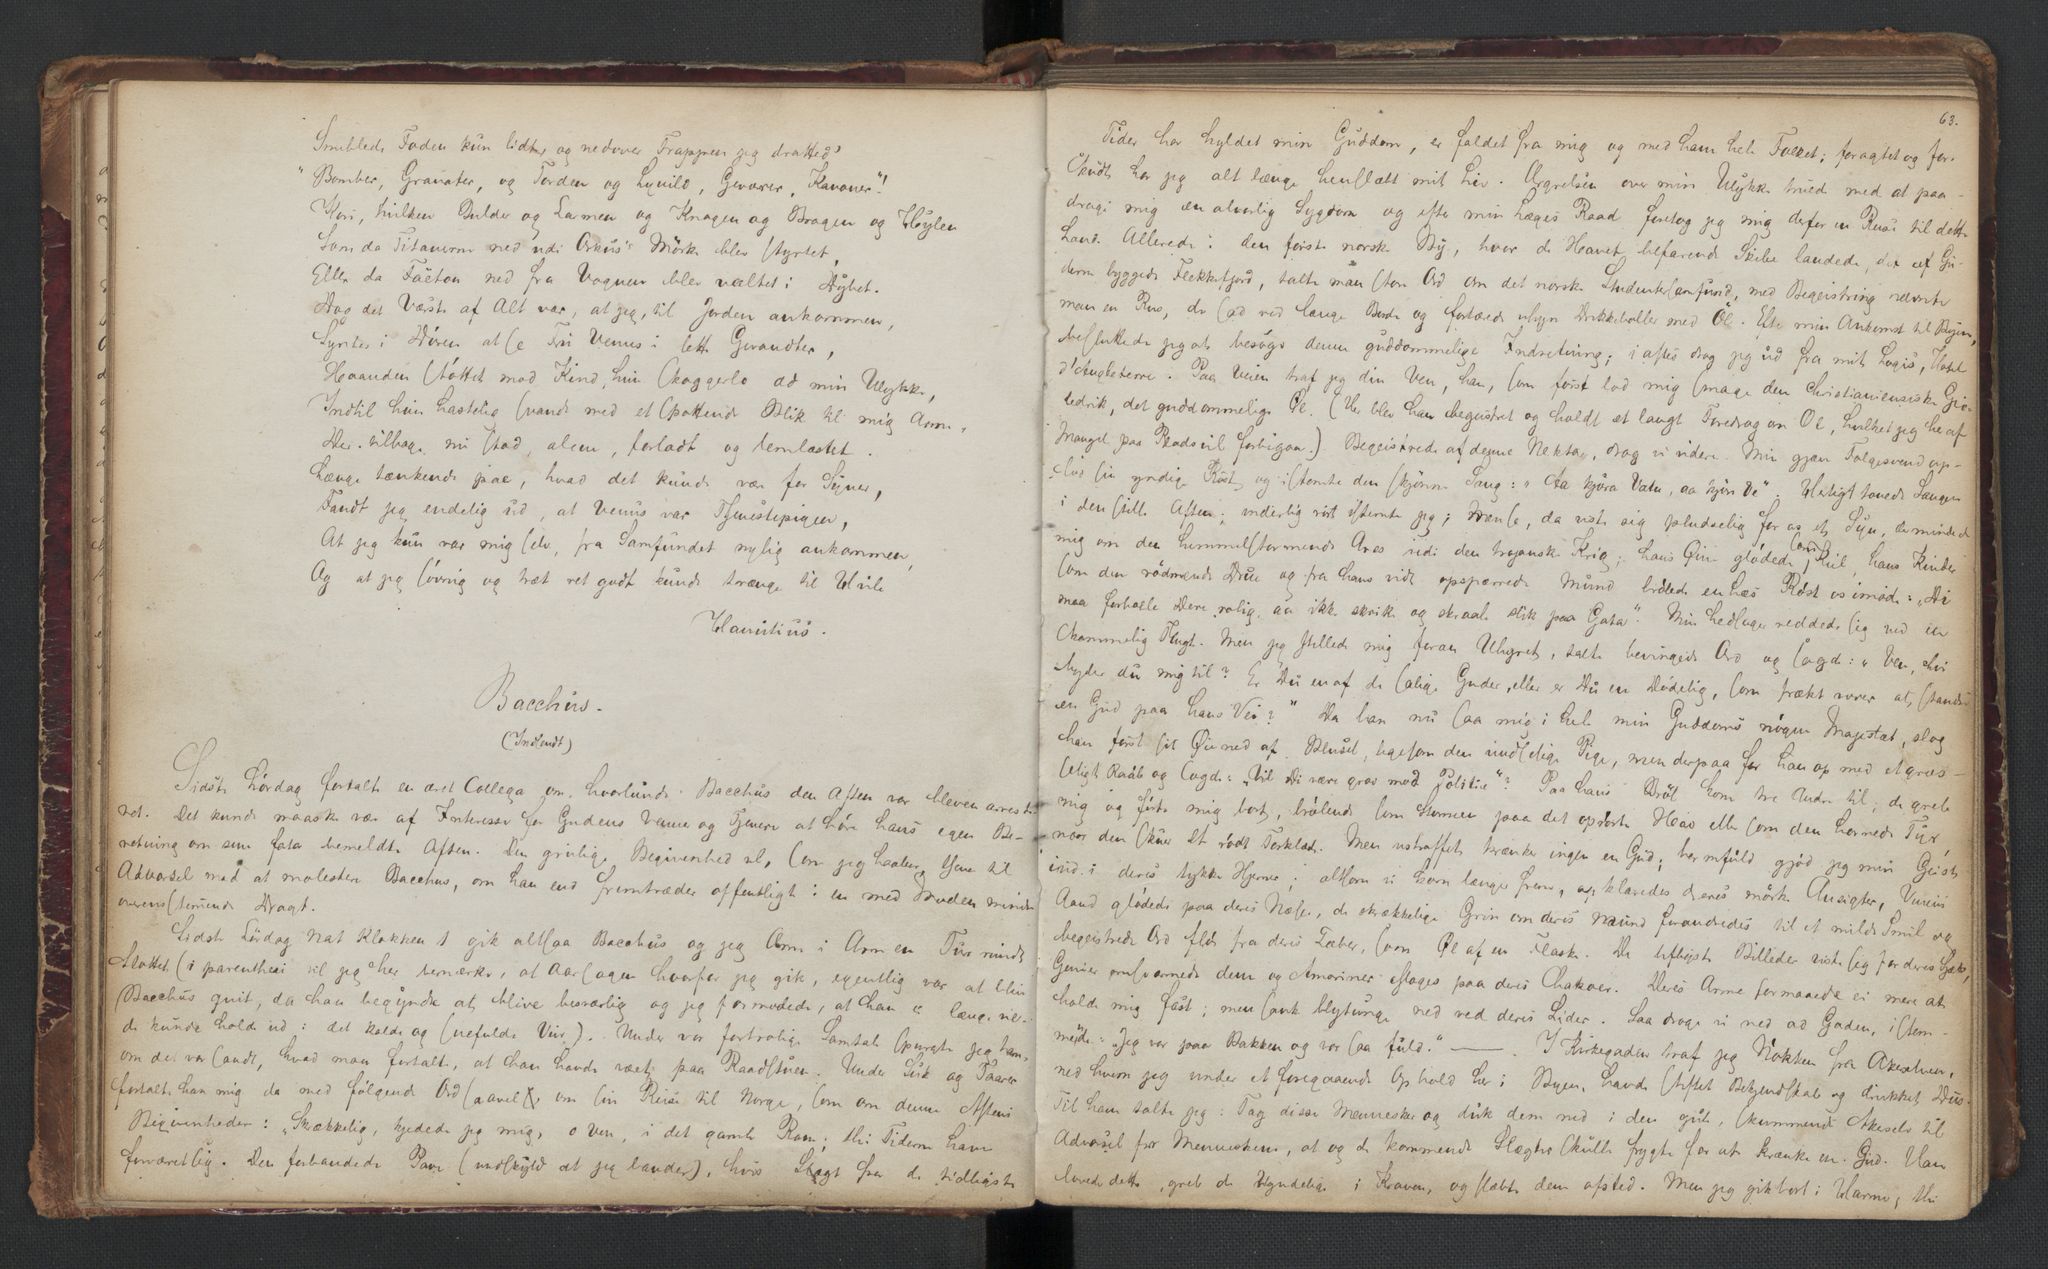 Snublede Foden kun lidt og nedover Trappen jeg dratted'
"Bomber, Granater, og Torden og Lynild, Geværer, Kanoner"!
Hui, hvilken Bulder og Larmen og Knagen og Bragen og Hylen
Som da Titanerne ned udi Orkus's Mörke blev styrtet,
Eller da Faëton ned fra Vognen blev væltet i Dybet.
Dog det Værste af Alt var, at jeg, til Jorden ankommen,
Syntes i Dören at se Fru Venus i lette Gevandter,
Haanden stöttet mod Kind, hun skoggerlo ad min Ulykke,
Indtil hun hastelig svandt med et spottende Blik til mig Arme,
Der tilbage nu stod, alene, forladt og lemlæstet.
Længe tænkende paa, hvad det kunde være for Syner,
Fandt jeg endelig ud, at Venus var Tjenestepigen,
At jeg kun var mig selv, fra Samfundet nylig ankommen,
Og at jeg sövnig og træt ret godt kunde trænge til Hvile
Bacchus.
(Indsendt)
Sidste Lørdag fortalte en æret Collega om, hvorlunde Bacchus den Aften var bleven arreste-
ret. Det kunde maaske være af Interesse for Gudens Venner og Tjenere at höre hans egen Be-
retning om sin fata bemeldte Aften. Den grulige Begivenhed vil, som jeg haaber, tjene til
Advarsel mod at molestere Bacchus, om han end fremtræder offentligt i en med Moden mindre
overensstemmende Dragt.
Sidste Lørdag Nat Klokken 1 gik altsaa Bacchus og jeg Arm i Arm en Tur rundt
Slottet (i parenthesi vil jeg her bemærke, at Aarsagen hvorfor jeg gik, egentlig var at blive
Bacchus quit, da han begyndte at blive besværlig og jeg formodede, at han ei længe vil-
de kunde holde ud i det kolde og snefulde Veir). Under vor fortrolige Samtale spurgte jeg ham,
om det var sandt, hvad man fortalte, at han havde været paa Raadstuen. Under Suk og Taarer
fortalte han mig da med fölgende Ord saavel om sin Reise til Norge, som om denne Aftens
Begivenheder: "Skrækkelig, kjedede jeg mig, o Ven, i det gamle Rom; thi Tiderne have
forværret sig. Den forbandede Pave (undskyld at jeg bander), hvis Slægt fra de tidligste
63.
Tider har hyldet min Guddom, er faldet fra mig og med ham hele Folket; foragtet og for-
skudt har jeg alt længe henslæbt mit Liv. Ærgrelsen over min Ulykke truede med at paa-
drage mig en alvorlig Sygdom og efter min Læges Raad foretog jeg mig derfor en Reise til dette
Land. Allerede i den förste norske By, hvor de Havet befarende Skibe landede, det af Gu-
derne byggede Flekkefjord, talte man store Ord om det norske Studentersamfund, med Begeistring nævnte
man en Rus, der sad ved lange Borde og fortærede uhyre Drikkeboller med Öl. Efter min Ankomst til Byen,
besluttede jeg at besöge denne guddommelige Indretning; i aftes drog jeg ud fra mit Logis, Hotel
d'Angleterre. Paa Veien traf jeg din Ven, han, som först lod mig smage den Christianiensiske Gje-
tedrik, det guddommelige Öl. (Her blev han begeistret og holdt et langt Foredrag om Öl, hvilket jeg her af
Mangel paa Plads vil forbigaa.) Begeistrede af denne Nektar, drog vi videre. Min gjæve Fölgesvend op-
löd sin yndige Röst og istemte den skjönne Sang: "Aa kjöra Vatn, aa kjöre Ve". Herligt tonede Sangen
i den stille Aften; inderlig rört istemte jeg; da viste sig pludselig for os et Syn, der mindede
mig om den himmelstormende Ares udi den trojanske Krig; hans Öine glödede som Kul, hans Kinder
som den rödmende Drue og fra hans vidt opspærrede Mund brölede en hæs Röst os imöde: "Di
maa forholle Dere rolig, aa ikke skrike og skraale slik paa Gata". Min Ledsager reddede sig ved en
skammelig Flugt. Men jeg stillede mig foran Uhyret, talte bevingede Ord og sagde: "Ven, hvi
byder du mig til? Er Du en af de salige Guder, eller er Du en Dödelig, som frækt vover at standse
en Gud paa hans Vei?" Da han nu saa mig i hele min Guddoms nögne Majestæt, slog
han först sit Öie ned af Blusel, ligesom den uudselige Pige, men derpaa for han op med et græs-
seligt Raab og sagde: "Vil Di være grov mod Politie"? Paa hans Bröl kom tre Andre til; de greb
mig og förte mig bort, brölende som Stormen paa det oprörte Hav eller som den hornede Tyr,
naar den skuer et rödt Törklæde. Men ustraffet krænker ingen en Gud; harmfuld gjöd jeg min Geist
ind i deres tykke Hjerner; altsom vi kom længer frem, opklaredes deres mörke Ansigter, Vinens
Aand glödede paa deres Næse, de skrækkelige Grin om deres Mund forandredes til et mildt Smil og
begeistrede Ord flöd fra deres Læber, som Öl af en Flaske. De deiligste Billeder viste sig for deres Sjæle,
Genier omsværmede dem og Amoriner toges paa deres Chakoer. Deres Arme formaaede ei mere at
holde mig fast; men sank blytunge ned ved deres Sider. Saa droge vi ned ad Gaden, istem-
mende: "Jeg var paa Bakken og var saa fuld." —— . I Kirkegaden traf jeg Nökken fra Akerselven,
med hvem jeg under et foregaaende Ophold her i Byen, havde stiftet Bekjendtskab og drukket Dus.
Til ham talte jeg: Tag disse Mennesker og duk dem ned i den gule, skummende Akerselv til
Advarsel for Menneskene, at og de kommende Slægter skulle frygte for at krænke en Gud. Han
lovede dette, greb de Ryndelige i Kraven, og slæbte dem afsted. Men jeg gik bort i Harme, thi